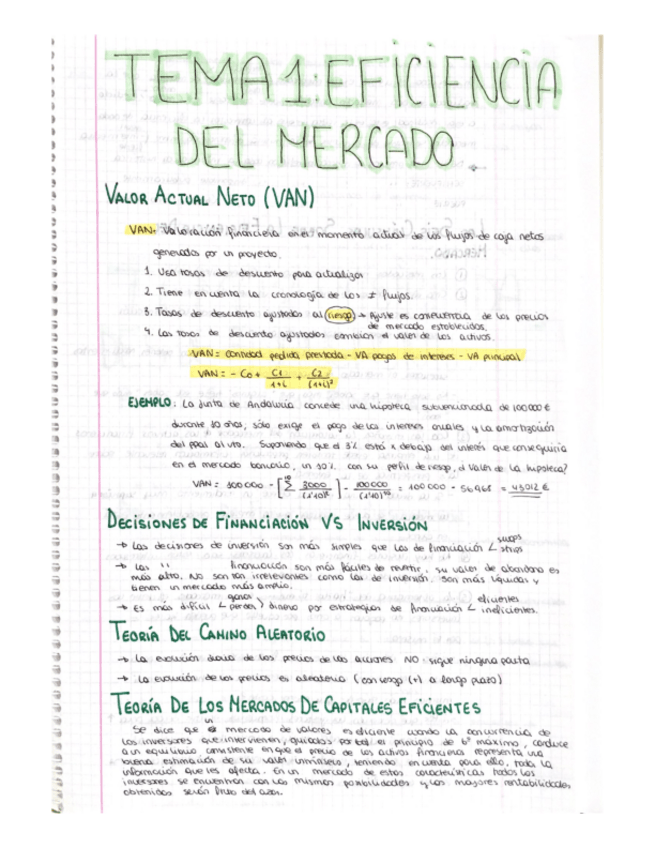 TEMA 1: EFICIENCIA
DEL MERCADO.
VALOR ACTUAL NETO (VAN)
VAN: Valoración financiera en el momento actual de los flujos de caja netos
generados por un proyecto.
1. Usa tasas de descuento para actualizar
2. Tiene en cuenta la cronología de los ≠ flujos.
3. Tasas de descuento ajustadas al riesgo → Ajuste es consecuencia de los precios
de mercado establecidos.
4. Las tasas de descuento ajustadas cambian el valor de los activos.
VAN = cantidad pedida prestada - VA pagos de intereses - VA principal
VAN = - C0 + C1/1+i + C2/(1+i)²
EJEMPLO: La Junta de Andalucía concede una hipoteca subvencionada de 100000 €
durante 10 años, sólo exige el pago de los intereses anuales y la amortización
del ppal al vto. Suponiendo que el 3% está x debajo del interés que conseguiría
en el mercado bancario, un 10% con su perfil de riesgo, el valor de la hipoteca?
VAN = 100000 - [Σ 3000/(1'10)] - 100000/(1'10)¹⁰ = 100000 - 56988 = 43012 €
DECISIONES DE FINANCIACIÓN VS INVERSIÓN
→ Las decisiones de inversión son más simples que las de financiación < swaps
strips
→ Las " financiación son más fáciles de revertir, su valor de abandono es
más alto, NO son tan irrelevantes como las de inversión. Son más líquidas y
tienen un mercado más amplio.
→ Es más difícil < ganar perder > dinero por estrategias de financiación < eficientes
ineficientes.
TEORÍA DEL CAMINO ALEATORIO
→ La evolución diaria de los precios de las acciones NO sigue ninguna pauta
→ La evolución de los precios es aleatoria (con sesgo (+) a largo plazo)
TEORÍA DE LOS MERCADOS DE CAPITALES EFICIENTES
Se dice que un mercado de valores es eficiente cuando la concurrencia de
los inversores que intervienen, guiados por el principio de bº máximo, conduce
a un equilibrio consistente en que el precio de los activos financieros representa una
buena estimación de su valor intrínseco, teniendo en cuenta para ello, toda la
información que les afecta. En un mercado de estas características todos los
inversores se encuentran con las mismas posibilidades y las mayores rentabilidades
obtenidas serán fruto del azar.